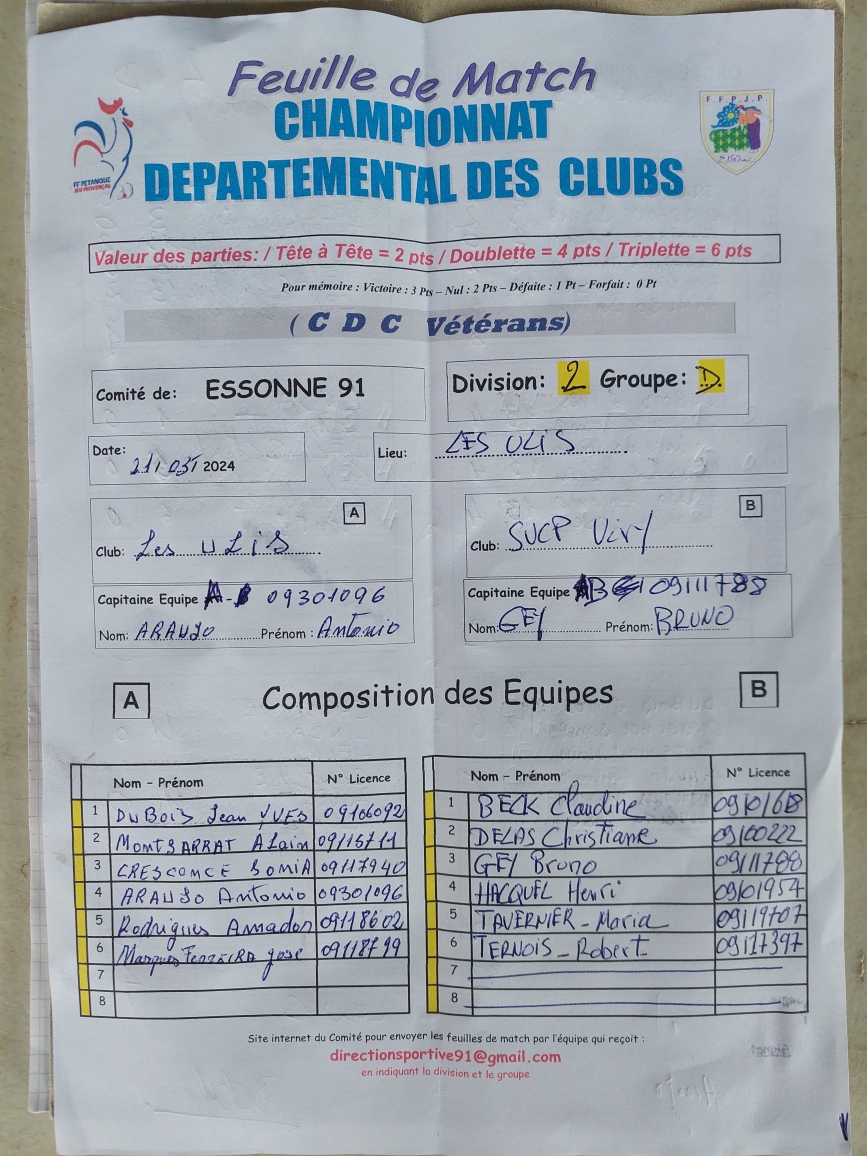 Feuille de Match
CHAMPIONNAT
DEPARTEMENTAL DES CLUBS
FF PETANQUE
JEU PROVENÇAL
F.F.P.J.P.
Essonne
Valeur des parties: / Tête à Tête = 2 pts / Doublette = 4 pts / Triplette = 6 pts
Pour mémoire : Victoire : 3 Pts – Nul : 2 Pts – Défaite : 1 Pt – Forfait : 0 Pt
( C D C Vétérans)
Comité de: ESSONNE 91
Division: 2 Groupe: D
Date: 21/03/2024
Lieu: LES ULIS
A
Club: Les ULIS
B
Club: SUCP Viry
Capitaine Equipe A 09301096
Nom: ARAUJO Prénom : Antonio
Capitaine Equipe B 09111788
Nom: GEY Prénom: BRUNO
A Composition des Equipes B
Nom – Prénom N° Licence
1 DUBOIS Jean YVES 09106092
2 MONTSARRAT Alain 09115711
3 CRESCONCE SOMIA 09117940
4 ARAUJO Antonio 09301096
5 Rodrigues Amador 09118602
6 Marques FERREIRA José 09118799
7
8
Nom – Prénom N° Licence
1 BECK Claudine
2 DELAS Christiane 09100222
3 GEY Bruno 09111788
4 HACQUEL Henri 09101954
5 TAVERNIER - Maria 09119707
6 TERNOIS - Robert 09117397
7
8
Site internet du Comité pour envoyer les feuilles de match par l'équipe qui reçoit :
directionsportive91@gmail.com
en indiquant la division et le groupe